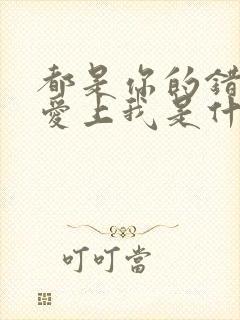 都是你的错
爱上我是什
叮叮當